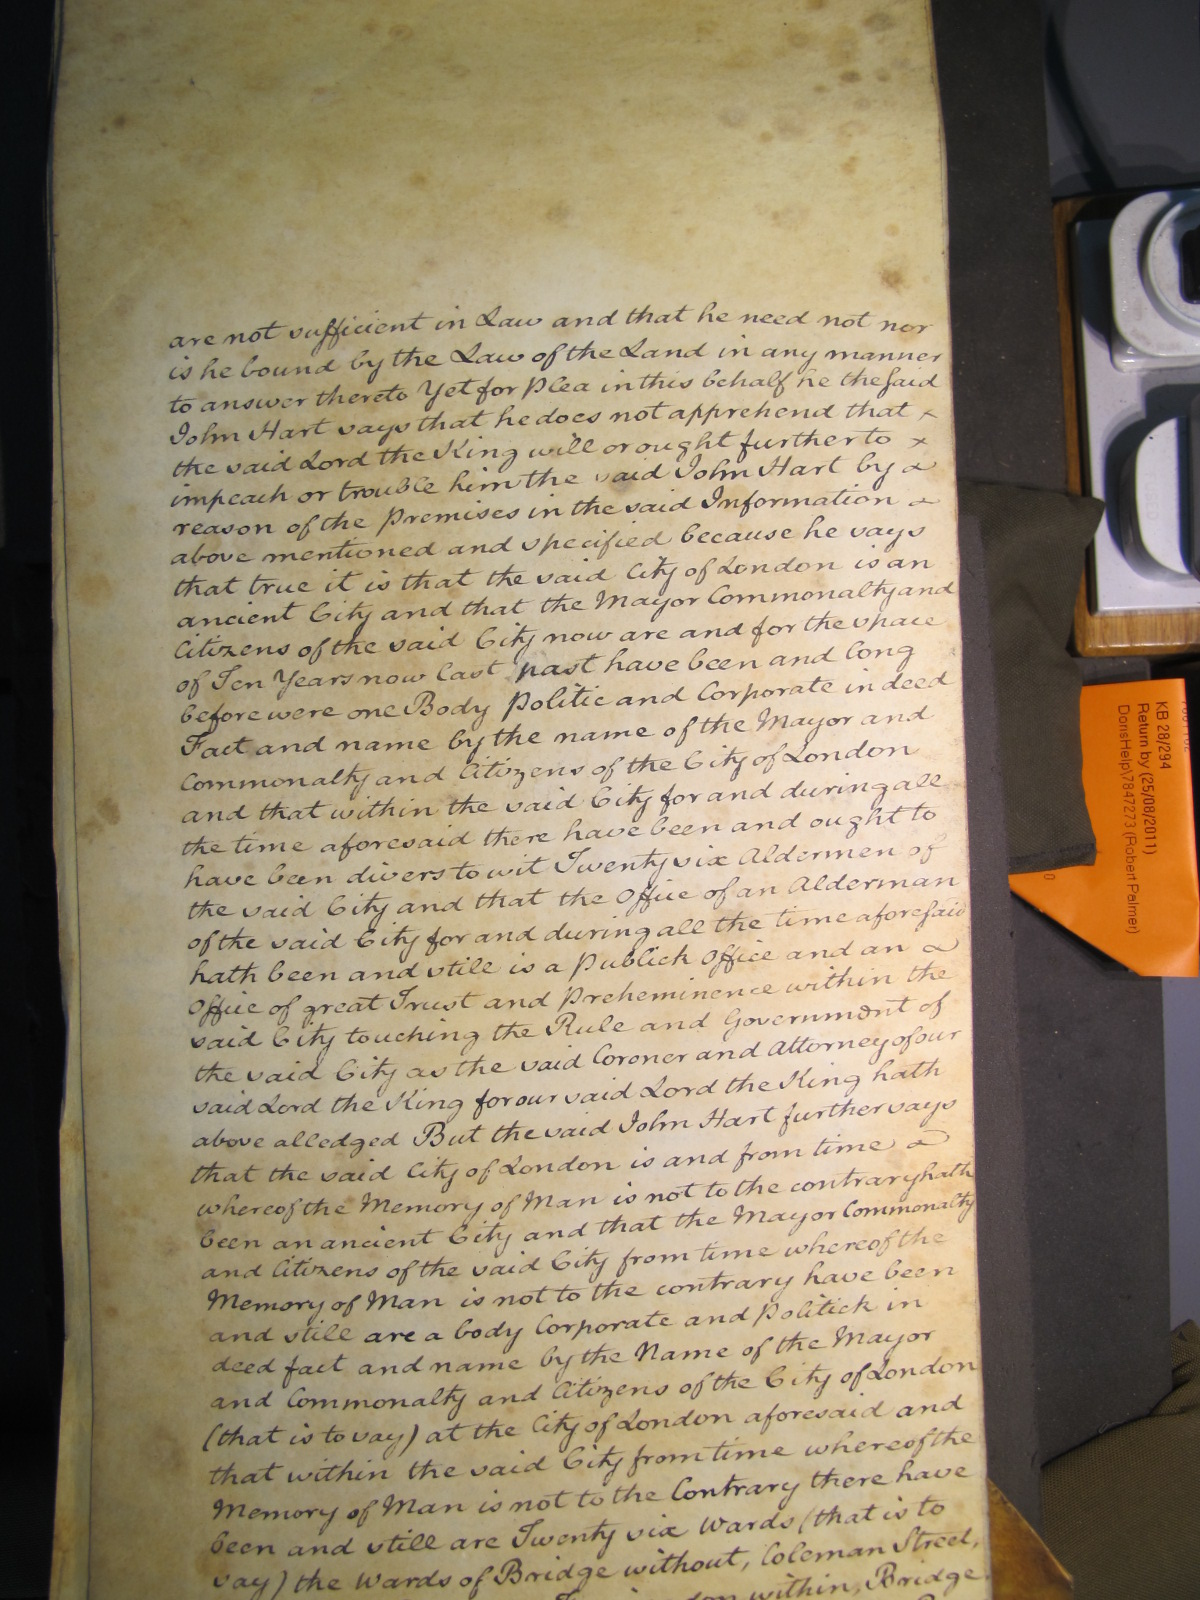 are not sufficient in Law and that he need not nor
is he bound by the Law of the Land in any manner
to answer thereto Yet for Plea in this behalf he the said
John Hart says that he does not apprehend that
the said Lord the King will or ought further to
impeach or trouble him the said John Hart by
reason of the Premises in the said Information
above mentioned and specified because he says
that true it is that the said City of London is an
ancient City and that the Mayor Commonalty and
Citizens of the said City now are and for the space
of Ten Years now last past have been and long
before were one Body Politic and Corporate in deed
Fact and name by the name of the Mayor and
Commonalty and Citizens of the City of London
and that within the said City for and during all
the time aforesaid there have been and ought to
have been divers to wit Twenty six Aldermen of
the said City and that the Office of an Alderman
of the said City for and during all the time aforesaid
hath been and still is a Publick Office and an
Office of great Trust and Preheminence within the
said City touching the Rule and Government of
the said City as the said Coroner and Attorney of our
said Lord the King for our said Lord the King hath
above alledged But the said John Hart further says
that the said City of London is and from time
whereof the Memory of Man is not to the contrary hath
been an ancient City and that the Mayor Commonalty
and Citizens of the said City from time whereof the
Memory of Man is not to the contrary have been
and still are a body Corporate and Politick in
deed fact and name by the Name of the Mayor
and Commonalty and Citizens of the City of London
(that is to say) at the City of London aforesaid and
that within the said City from time whereof the
Memory of Man is not to the Contrary there have
been and still are Twenty six Wards (that is to
say) the Wards of Bridge without, Coleman Street,
within, Bridge
KB 28/294
Return by (25/08/2011)
DorisHelp\7847273 (Robert Palmer)